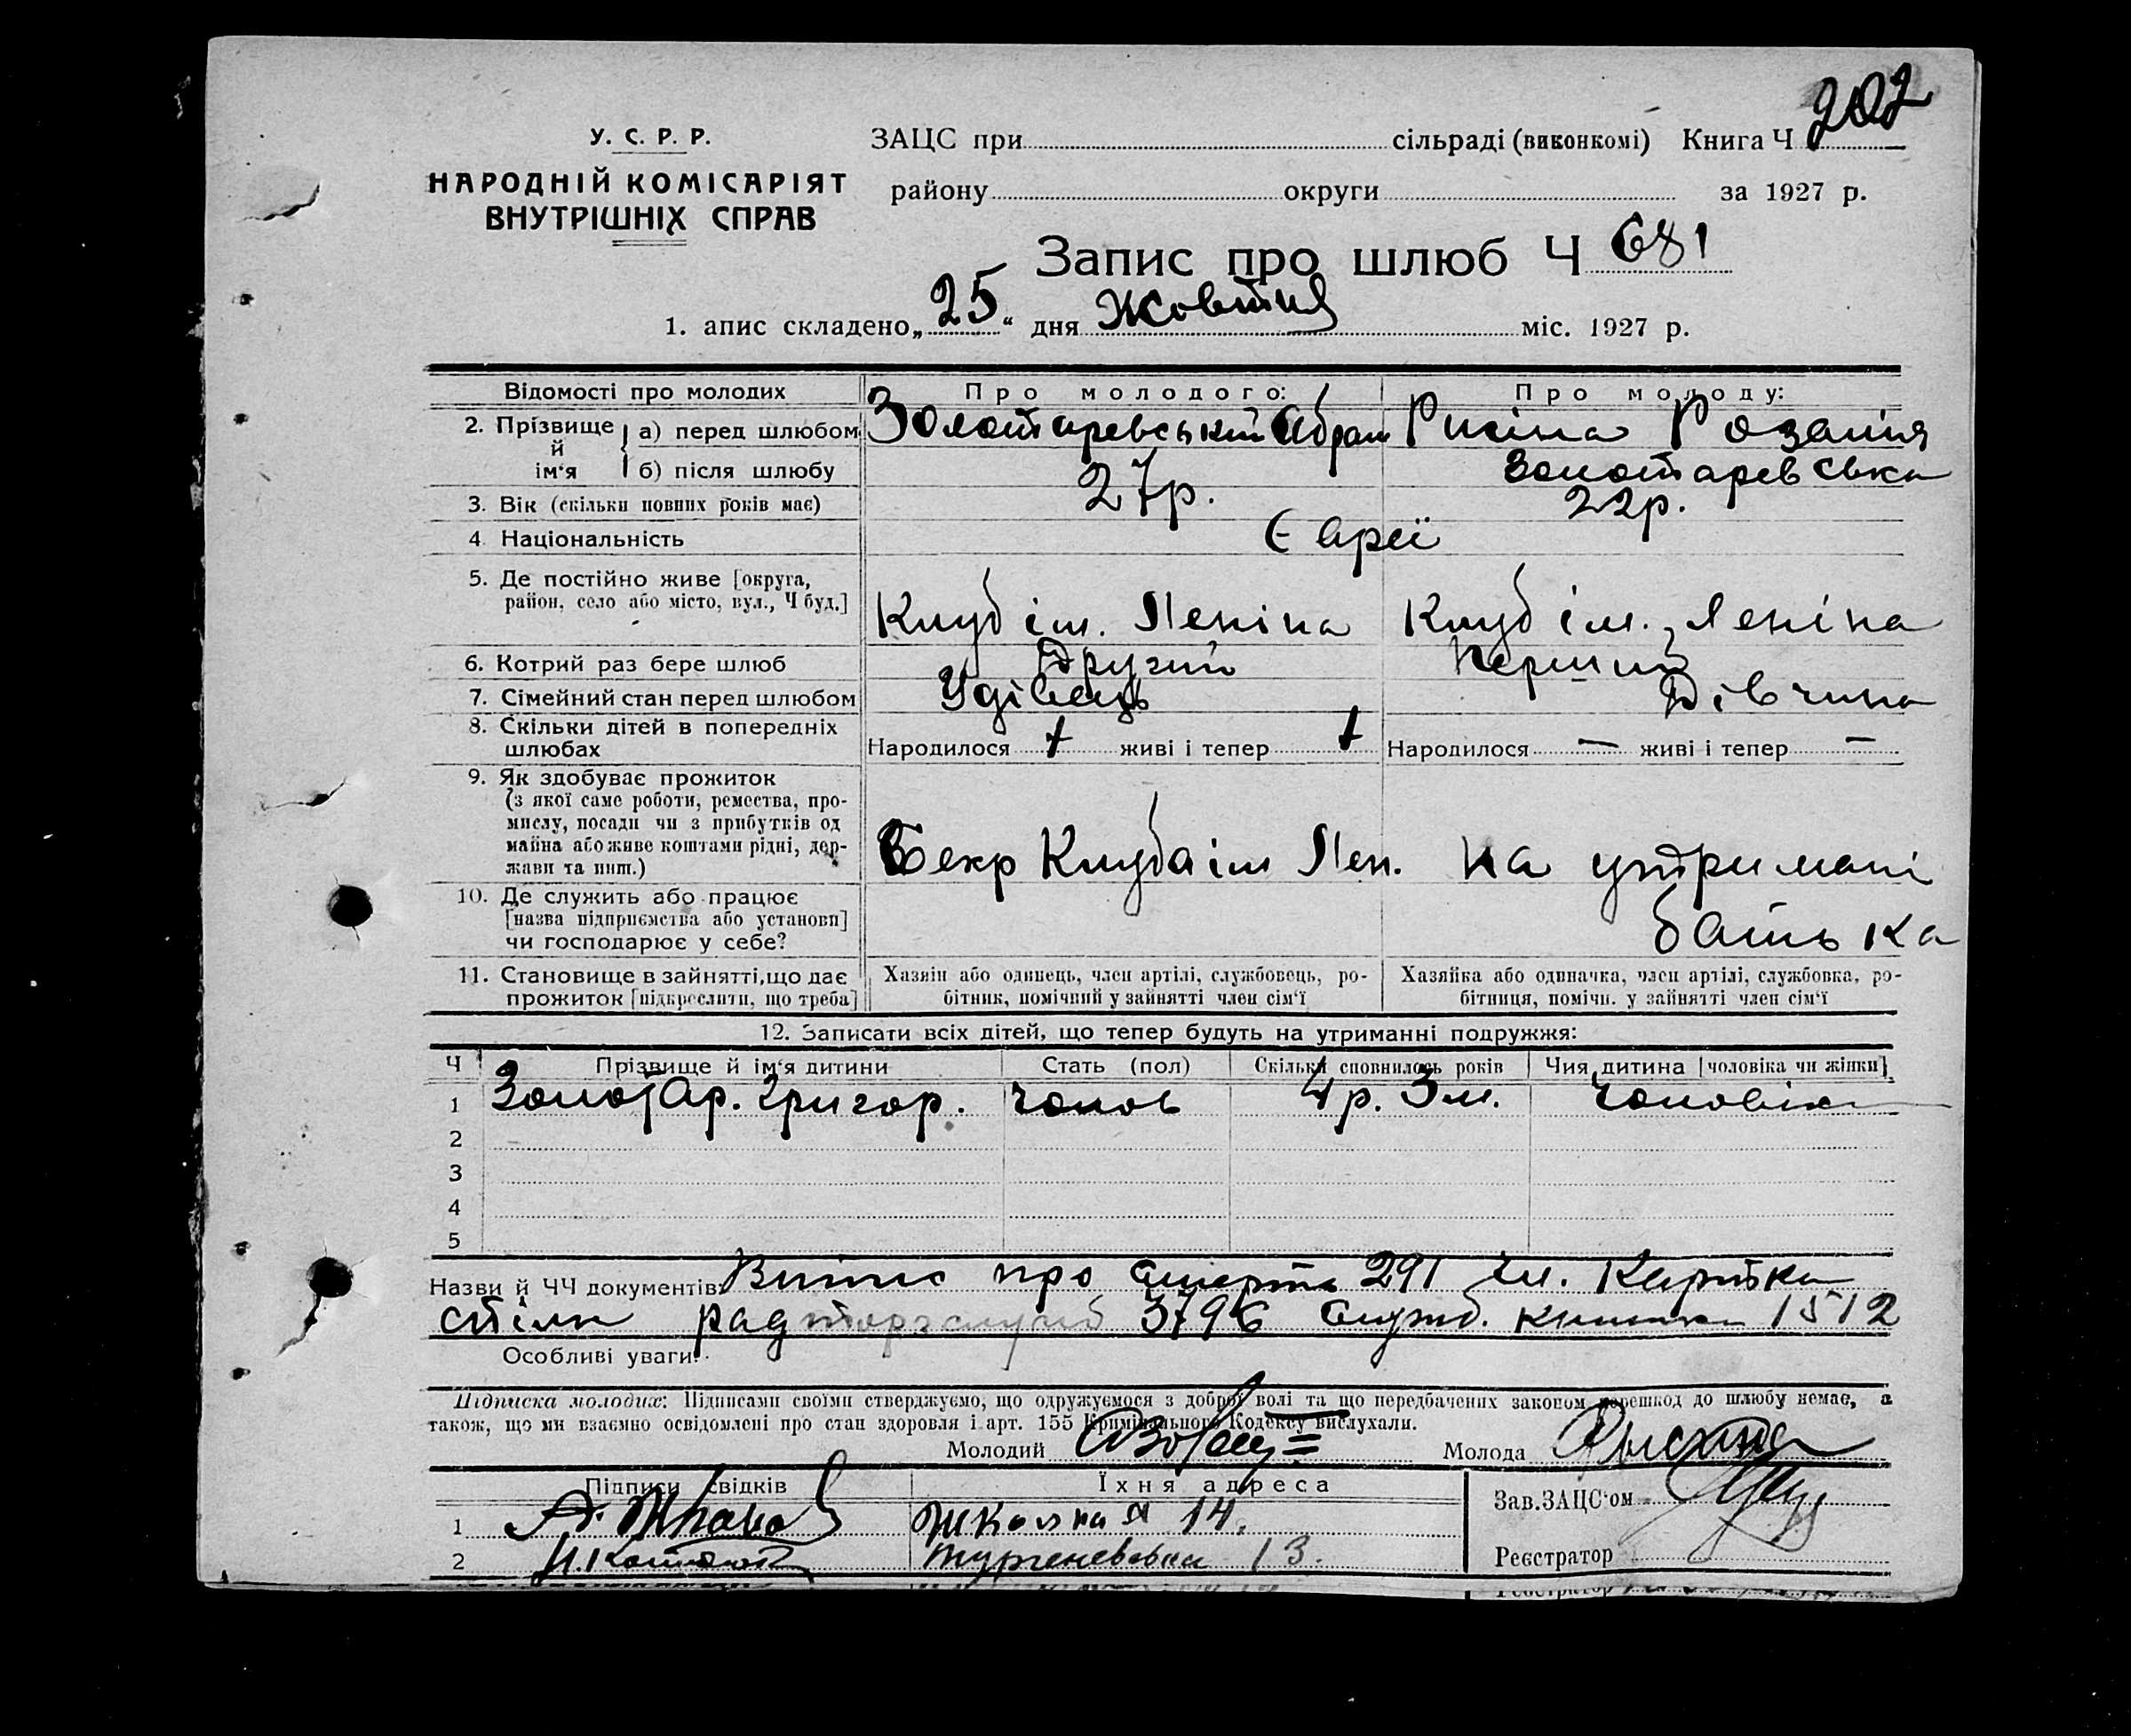 202
У. С. Р. Р.
НАРОДНІЙ КОМІСАРІЯТ
ВНУТРІШНІХ СПРАВ
ЗАЦС при сільраді (виконкомі) Книга Ч
району округи за 1927 р.
Запис про шлюб Ч 681
1. апис складено „25“ дня Жовтня міс. 1927 р.
Відомості про молодих Про молодого: Про молоду:
2. Прізвище й ім‘я а) перед шлюбом Золотаревський Абрам Рисіна Розалія
б) після шлюбу Золотаревська
3. Вік (скільки повних років має) 27р. 22р.
4. Національність Євреї
5. Де постійно живе [округа,
район, село або місто, вул., Ч буд.] Клуб ім. Леніна Клуб ім. Леніна
6. Котрий раз бере шлюб Другий Перший
7. Сімейний стан перед шлюбом Удівець Дівчина
8. Скільки дітей в попередніх
шлюбах Народилося 1 живі і тепер 1 Народилося — живі і тепер —
9. Як здобуває прожиток
(з якої саме роботи, ремества, про-
мислу, посади чи з прибутків од
майна або живе коштами рідні, дер-
жави та инш.) Секр Клуба ім Лен. на утримані
10. Де служить або працює
[назва підприємства або установи] батька
чи господарює у себе?
11. Становище в зайнятті, що дає Хазяін або одинець, член артілі, службовець, ро- Хазяйка або одиначка, член артілі, службовка, ро-
прожиток [підкреслити, що треба] бітник, помічний у зайнятті член сім‘ї бітниця, помічн. у зайнятті член сім‘ї
12. Записати всіх дітей, що тепер будуть на утриманні подружжя:
Ч Прізвище й ім‘я дитини Стать (пол) Скільки сповнилось років Чия дитина [чоловіка чи жінки]
1 Золотар. Григор. чолов 4р. 3м. Чоловіка
2
3
4
5
Назви й ЧЧ документів Витис про смерть 291 Чл. Картка
спілк радторгслужб 3796 Служб. книжка 1512
Особливі уваги:
Підписка молодих: Підписами своїми стверджуємо, що одружуємося з доброї волі та що передбачених законом перешкод до шлюбу немає, а
також, що ми взаємно освідомлені про стан здоровля і арт. 155 Кримінального Кодексу вислухали.
Молодий Молода
Підписи свідків Їхня адреса
Зав. ЗАЦС‘ом
1 Школьная 14.
2 Тургеневська 13.
Реєстратор